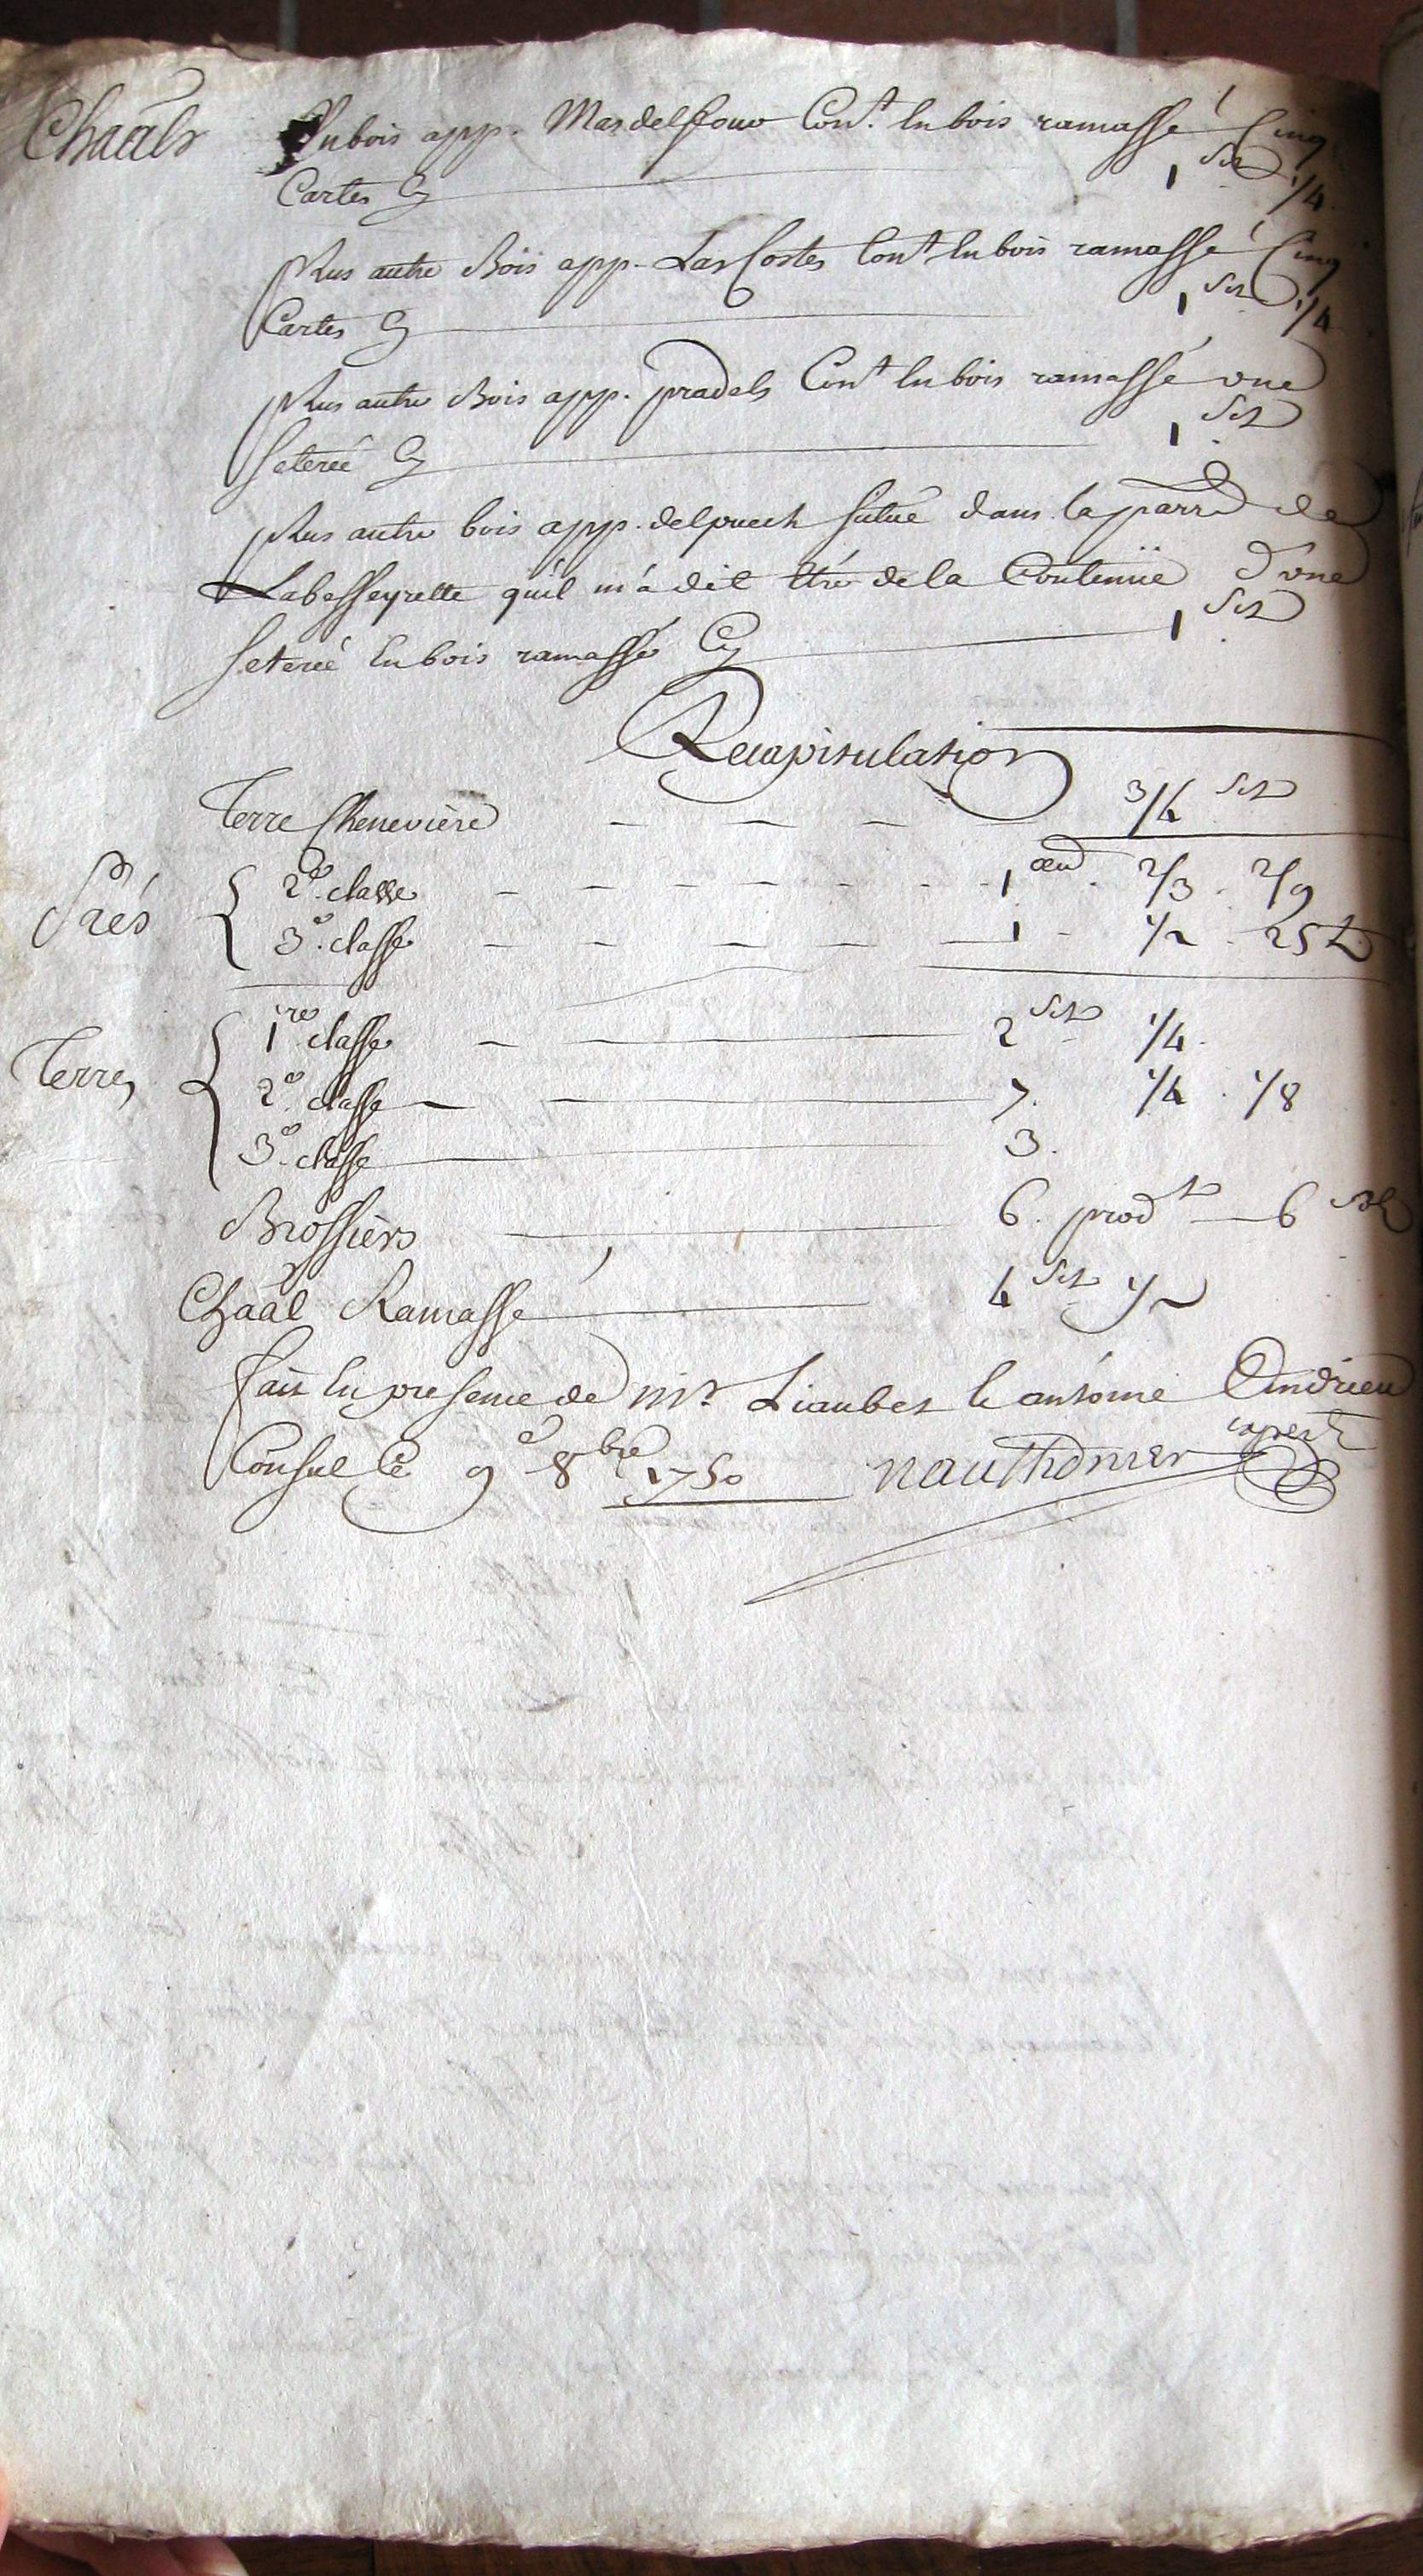 Chaals
Un bois app. Mas del four Con.t En bois ramassé Cinq
Cartes Cy 1 Set 1/4
Plus autre Bois app. Las Costes Con.t En bois ramassé Cinq
Cartes Cy 1 Set 1/4
Plus autre Bois app. pradels Con.t En bois ramassé une
seterée Cy 1 Set
Plus autre bois app. delpuech situé dans la parr. de
Labesseyrette qu'il m'a dit Etre de la Contenüe d'une
seterée En bois ramassé Cy 1 Set
Recapitulation
Terre Cheneviere 3/4 Set
Prés
2e. classe 1 œud 2/3 2/9
3e. classe 1 1/2 25 t
Terres
1re classe 2 Set 1/4
2e. classe 7. 1/4 1/8
3e. classe 3.
Brossiers 6. prod.t 6
Chaal Ramassé 4 Set 1/2
fait En presence de Mr. Liaubet & antoine Andrieu
Consul Ce 9e 8bre 1750 nauthonier expert